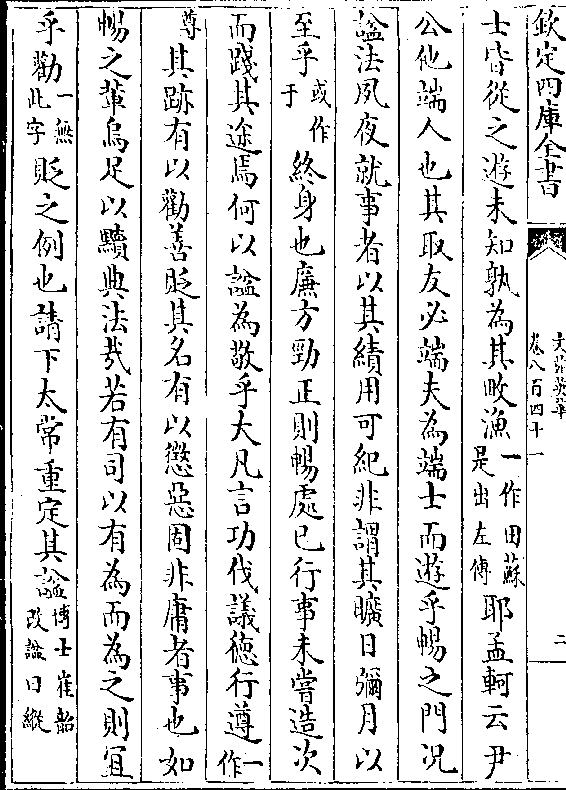 欽定四庫全書
文苑英華
卷八百四十一
二
士皆從之遊未知孰為其畋漁一作田蘇是出左傳耶孟軻云尹
公他端人也其取友必端夫為端士而遊乎暢之門況
諡法夙夜就事者以其績用可紀非謂其曠日彌月以
至乎或作于終身也廉方勁正則暢處已行事未嘗造次
而踐其途焉何以諡為敬乎大凡言功伐議德行遵一作
尊其跡有以勸善貶其名有以懲惡固非庸者事也如
暢之輩烏足以黷典法哉若有司以有為而為之則宜
乎勸一無此字貶之例也請下太常重定其諡博士崔韶改諡曰縱